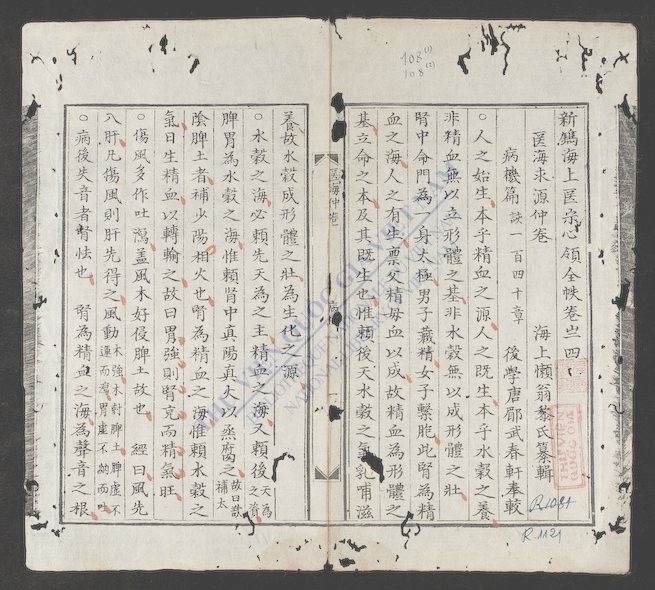 新鐫海上醫宗心領全帙卷之四
醫海求源仲卷 海上懶翁黎氏纂輯
病機篇 該一百四十章 後學唐郿武春軒奉較
○人之始生本乎精血之源人之既生本乎水穀之養
非精血無以立形體之基非水穀無以成形體之壯
腎中命門為一身太極男子藏精女子繫胞此腎為精
血之海人之有生稟父精母血以成故精血為形體之
基立命之本及其既生也惟賴後天水穀之氣乳哺滋
醫海仲卷
養故水穀成形體之壯為生化之源
○水穀之海必賴先天為之主精血之海又賴後天為之資
脾胃為水穀之海惟賴腎中真陽真火以蒸腐之故曰欲補太
陰脾土者補少陽相火也腎為精血之海惟賴水穀之
氣日生精血以轉輸之故曰胃強則腎充而精氣旺
○傷風多作吐瀉蓋風木好侵脾土故也 經曰風先
入肝凡傷風則肝先得之風動木強木尅脾土脾虛不運而瀉胃虛不納而吐
○病後失音者腎怯也 腎為精血之海為聲音之根
THƯ VIỆN QUỐC GIA VIỆT NAM
THƯ VIỆN QUỐC GIA
108 (1)
108 (2)
R.1084
R.1121